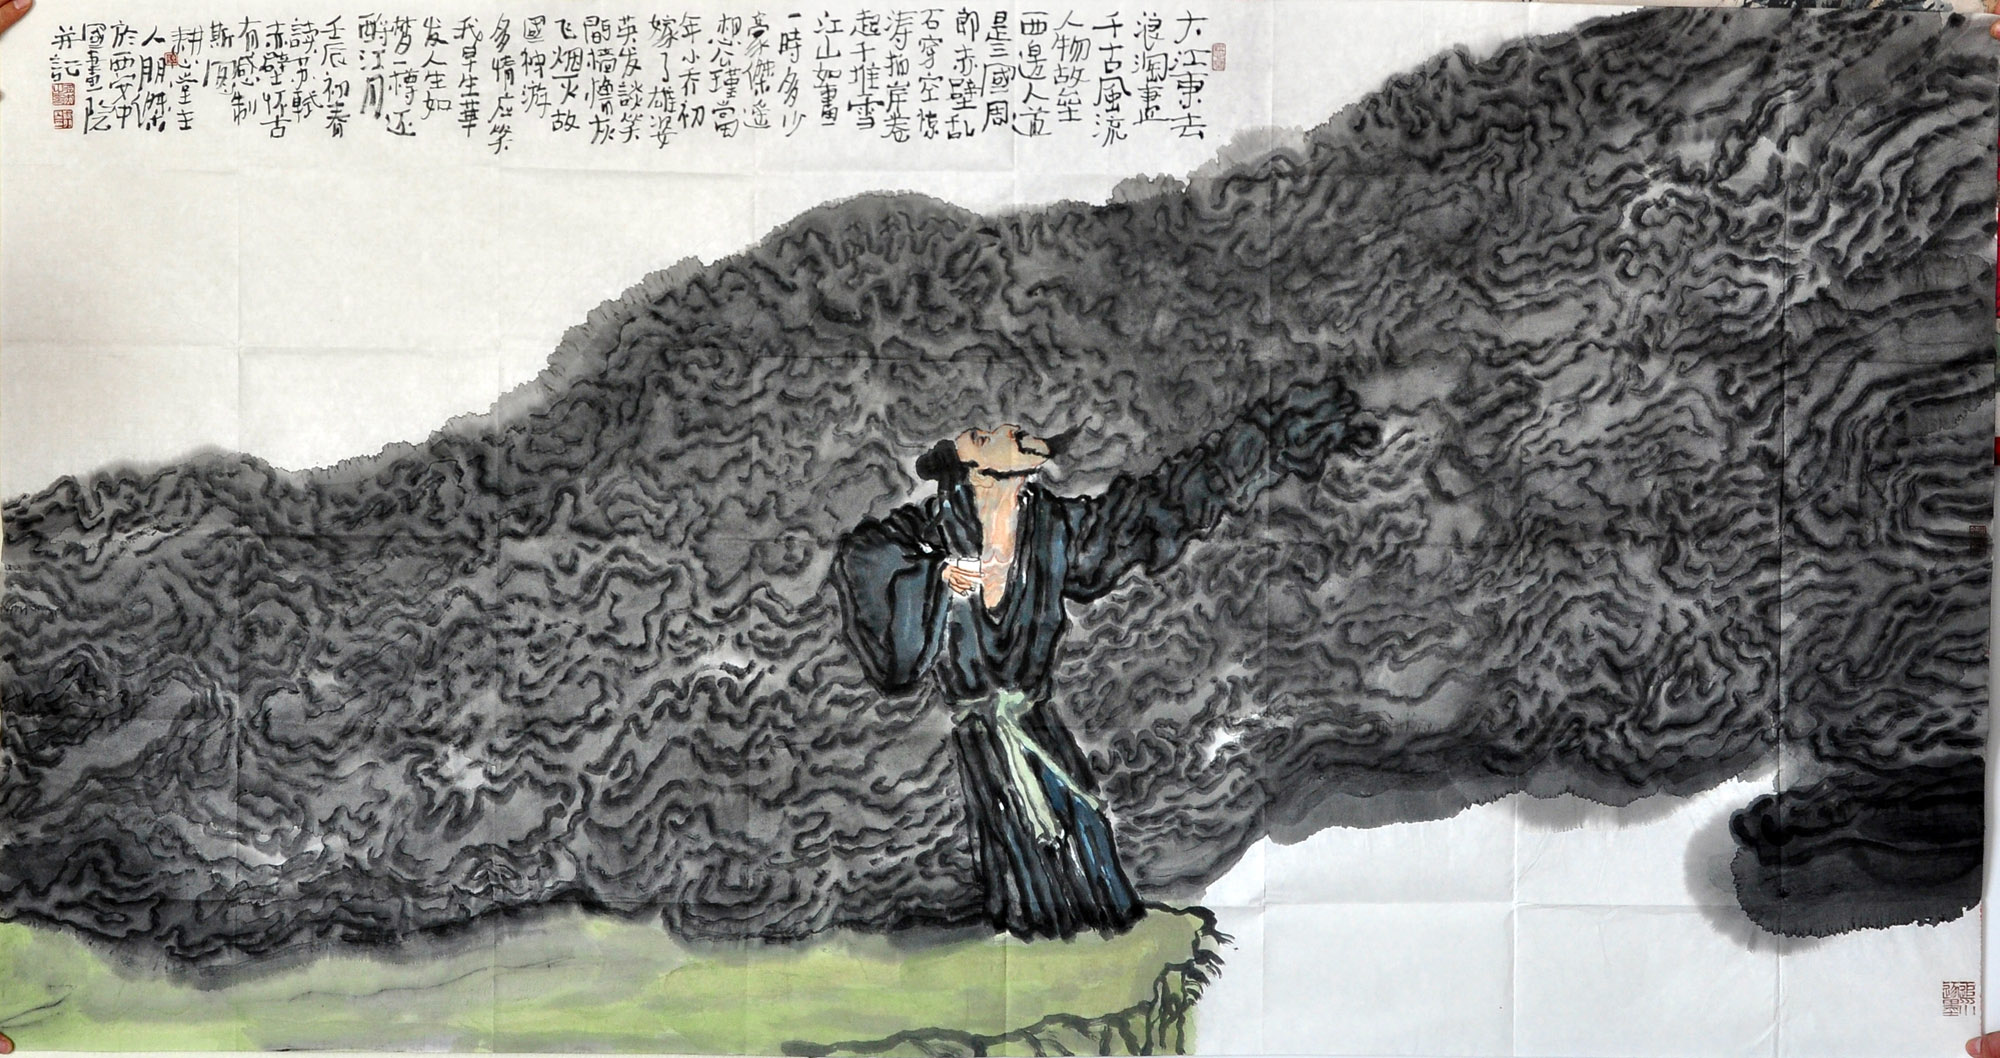 大江東去
浪淘盡
千古風流
人物故壘
西邊人道
是三國周
郎赤壁乱
石穿空驚
涛拍岸卷
起千堆雪
江山如畫
一時多少
豪傑遥
想公瑾當
年小乔初
嫁了雄姿
英发談笑
間檣櫓灰
飞烟灭故
國神游
多情应笑
我早生華
发人生如
梦一樽还
酹江月
壬辰初春
讀苏軾
赤壁怀古
有感制
斯圖
耕心堂主
人朋傑
於西安中
國畫院
并記